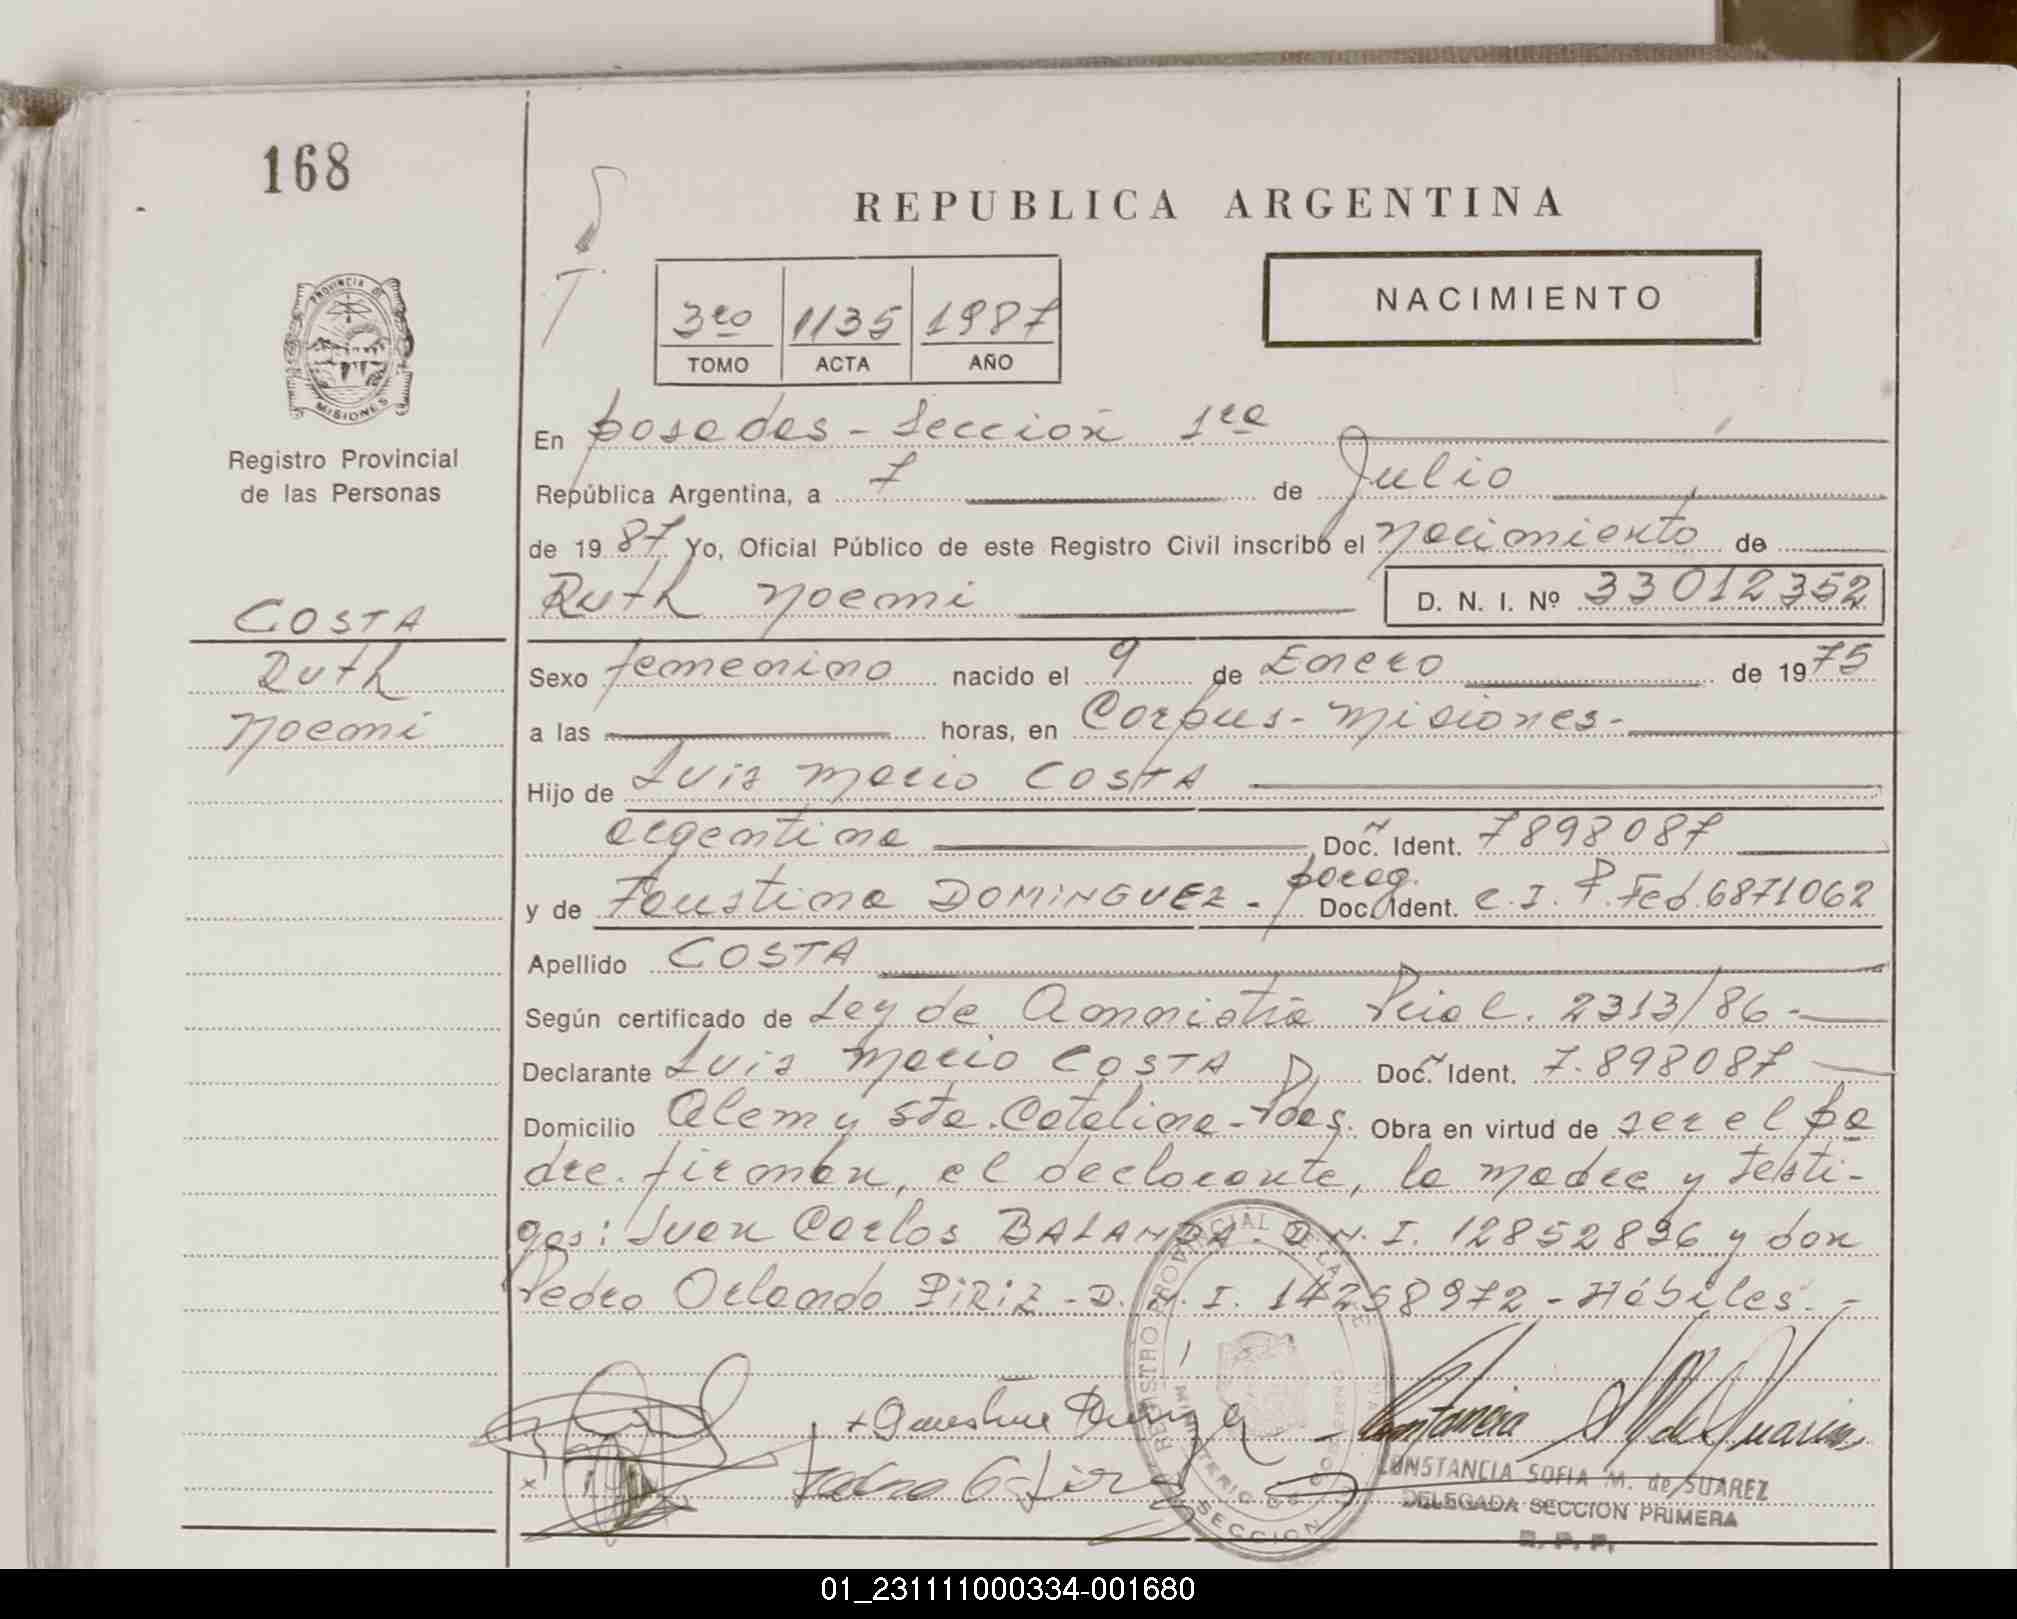 168
REPUBLICA ARGENTINA
3ro 1135 1987
TOMO ACTA AÑO
NACIMIENTO
PROVINCIA DE
MISIONES
Registro Provincial
de las Personas
COSTA
Ruth
Noemi
En Posadas - Sección 1ra
República Argentina, a 7 de Julio
de 1987 Yo, Oficial Público de este Registro Civil inscribo el Nacimiento de
Ruth Noemi D. N. I. Nº 33012352
Sexo femenino nacido el 9 de Enero de 1975
a las horas, en Corpus - Misiones -
Hijo de Luis Mario COSTA
argentino Doc. Ident. 7898087
y de Faustina DOMINGUEZ - parag. Doc. Ident. C. I. P. Fed. 6871062
Apellido COSTA
Según certificado de Ley de Amnistía Pcial. 2313/86 -
Declarante Luis Mario COSTA Doc. Ident. 7.898087
Domicilio Alem y Sta. Catalina - Pdas. Obra en virtud de ser el pa
dre. firman, el declarante, la madre y testi-
gos: Juan Carlos BALANDA. D.N.I. 12852896 y don
Pedro Orlando PIRIZ - D.N.I. 14258972 - Hábiles. -
REGISTRO PROVINCIAL DE LA
MINISTERIO DE GOBIERNO
SECCION
CONSTANCIA SOFIA M. de SUAREZ
DELEGADA SECCION PRIMERA
R. P. P.
01_231111000334-001680